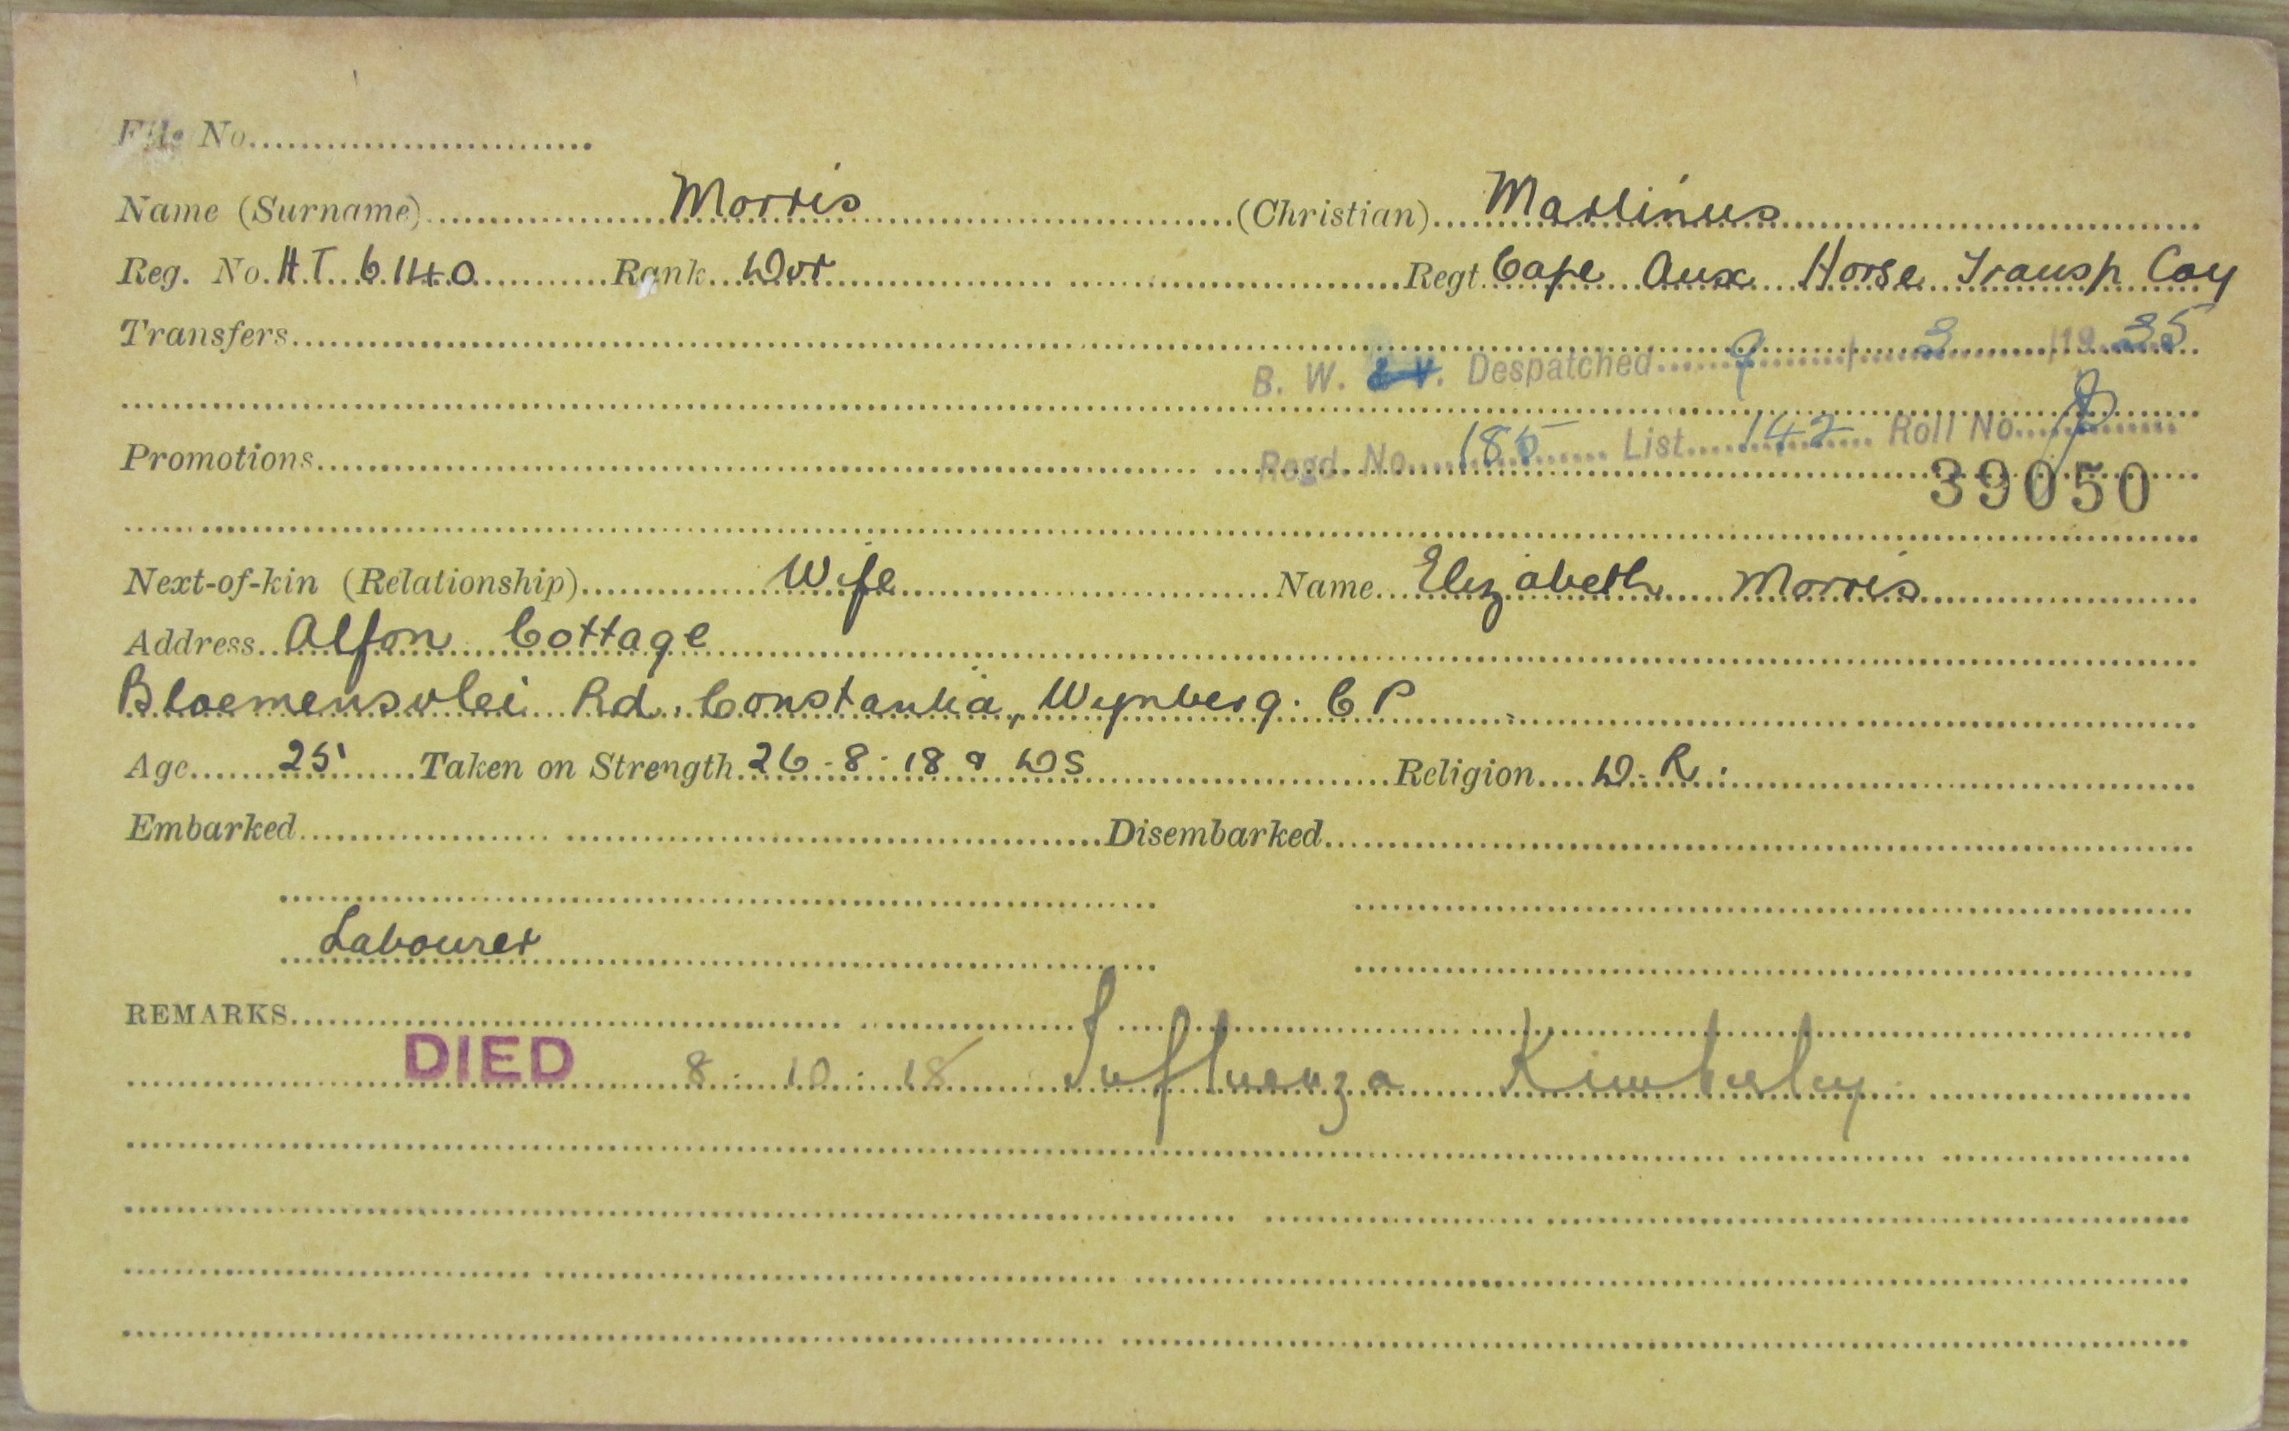 File No.
Name (Surname) Morris (Christian) Martinus
Reg. No. H.T. 6140 Rank Dvr Regt. Cape Aux Horse Transp Coy
Transfers
B. W. Despatched 9 / 3 /19 35
Promotions
Regd. No. 185 List 142 Roll No.
39050
Next-of-kin (Relationship) Wife Name Elizabeth Morris
Address Alfon Cottage
Bloemensvlei Rd, Constantia, Wynberg. C P
Age 25 Taken on Strength 26-8-18 DS Religion D.R.
Embarked Disembarked
Labourer
REMARKS
DIED 8.10.18 Influenza Kimberley